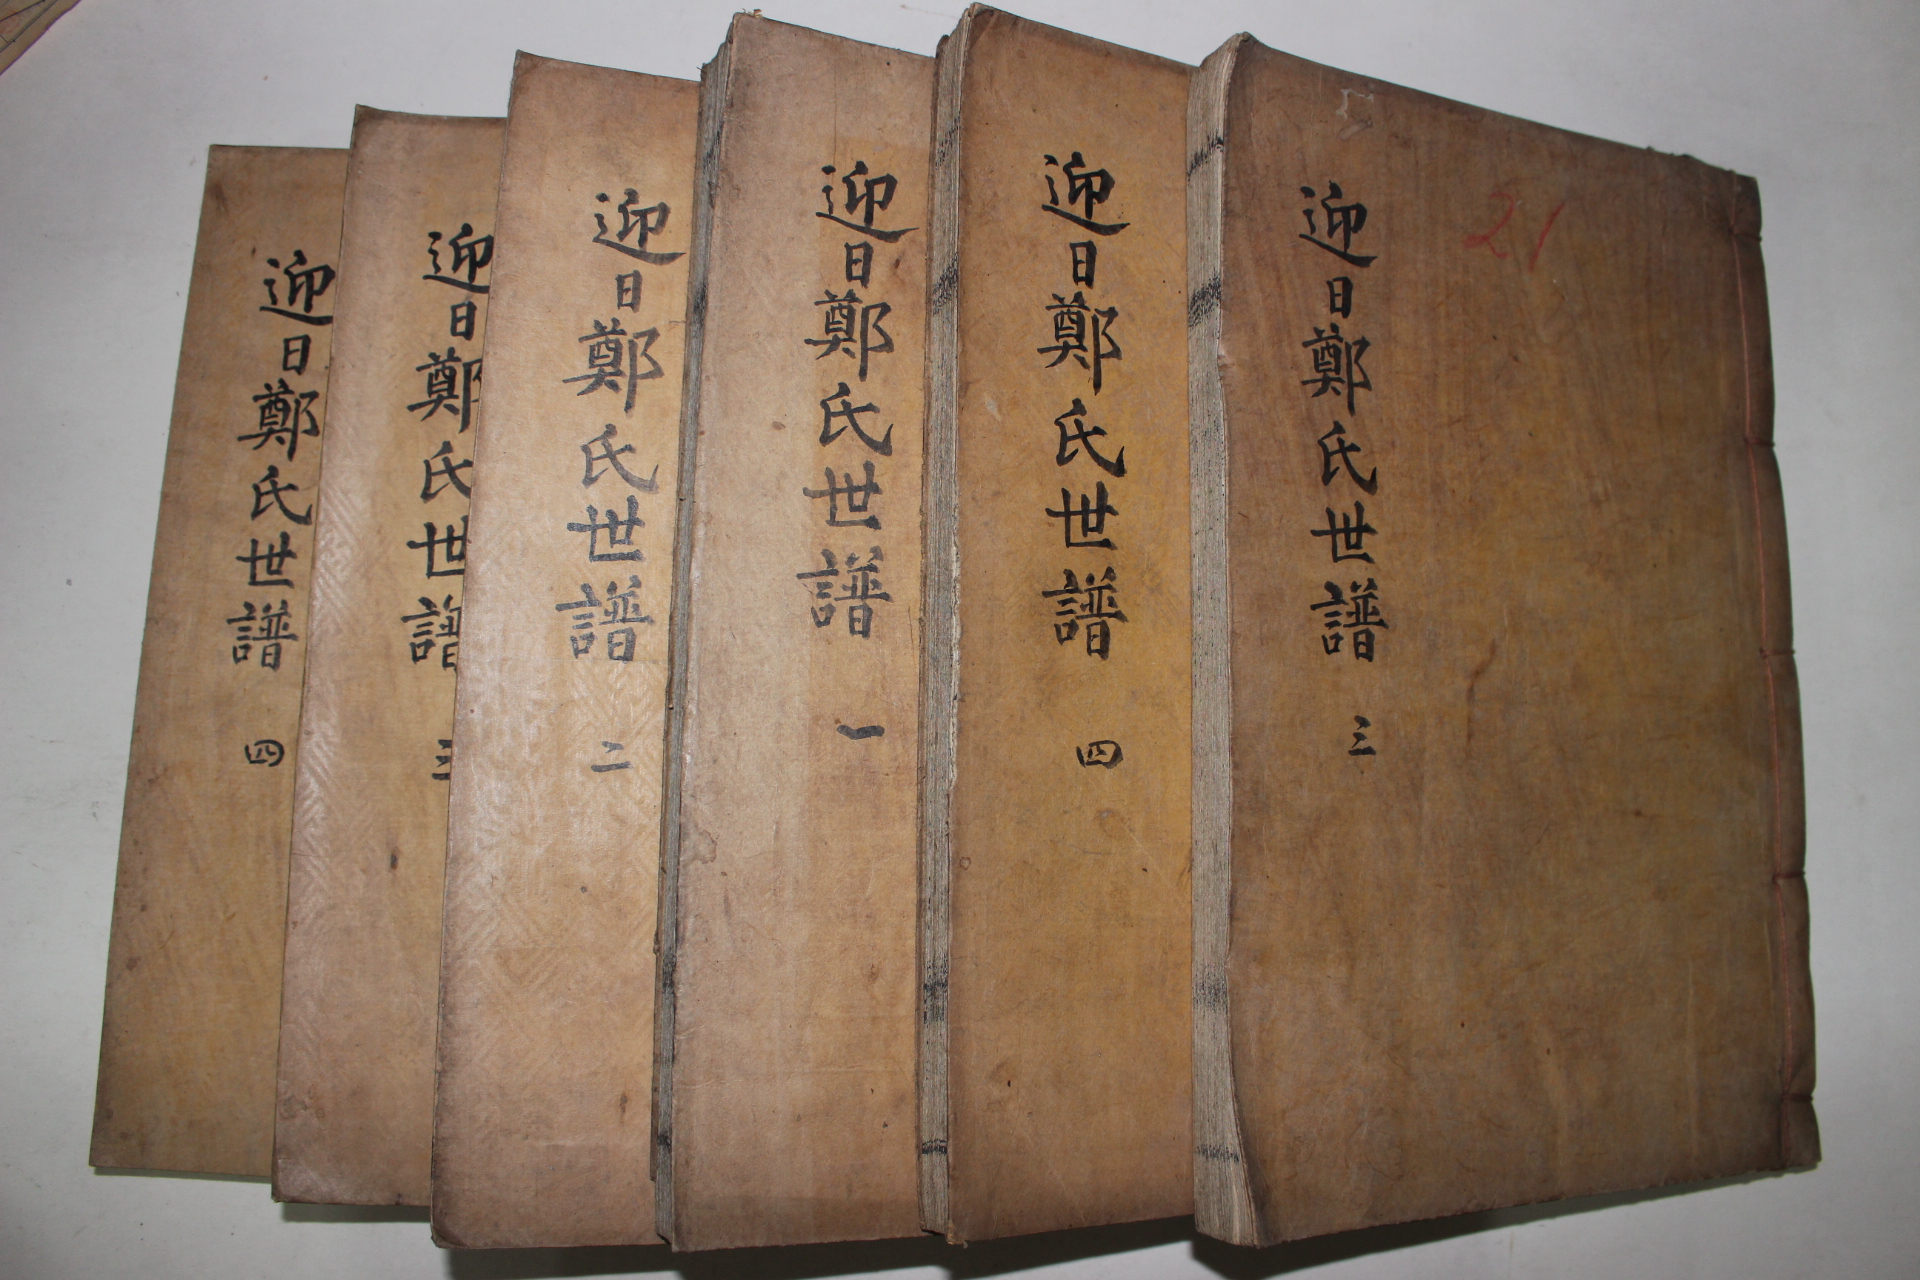 迎日鄭氏世譜 四
迎日鄭氏世譜 三
迎日鄭氏世譜 二
迎日鄭氏世譜 一
迎日鄭氏世譜 四
迎日鄭氏世譜 三
21